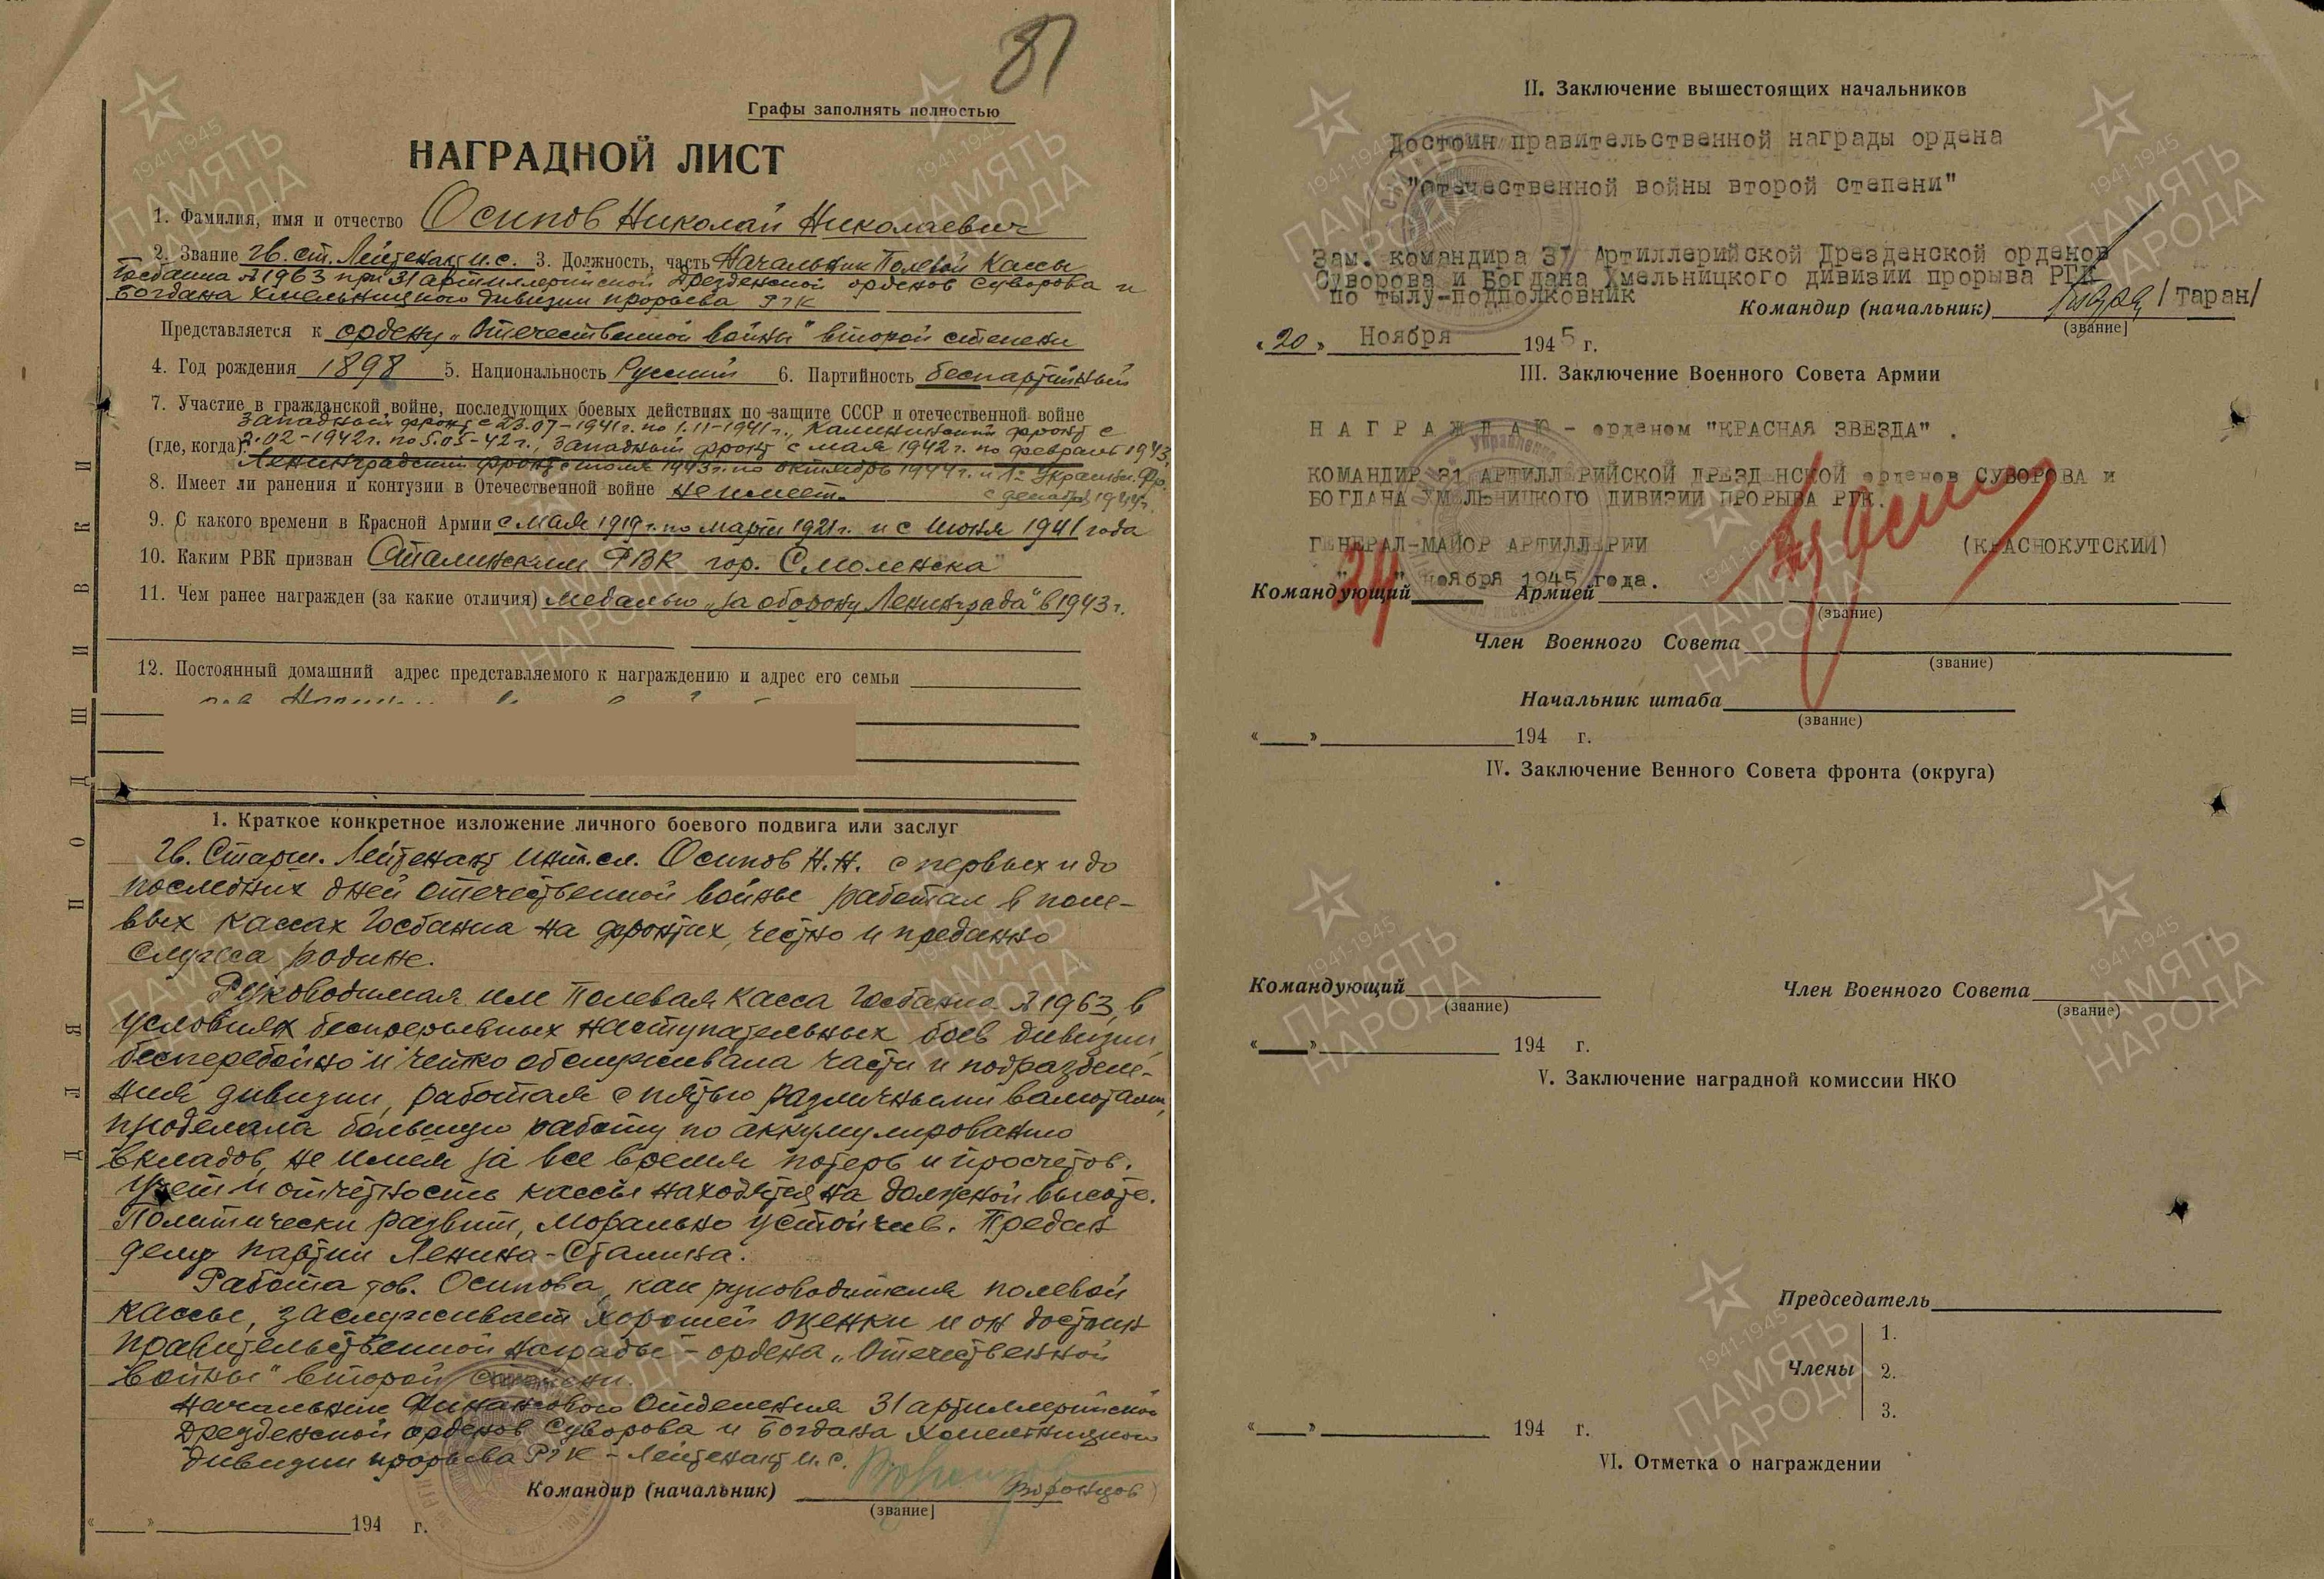 81
Графы заполнять полностью
НАГРАДНОЙ ЛИСТ
1. Фамилия, имя и отчество Осипов Николай Николаевич
2. Звание Гв. ст. Лейтенант и.с. 3. Должность, часть Начальник Полевой Кассы
Госбанка №1963 при 31 артиллерийской Дрезденской орденов Суворова и
Богдана Хмельницкого дивизии прорыва РГК
Представляется к ордену „Отечественной войны" второй степени
4. Год рождения 1898 5. Национальность Русский 6. Партийность беспартийный
7. Участие в гражданской войне, последующих боевых действиях по защите СССР и отечественной войне
Западный фронт с 23.07-1941г. по 1.11-1941г., Калининский фронт с
(где, когда) 2.02-1942г. по 5.05-42г., Западный фронт с мая 1942г. по февраль 1943,
Ленинградский фронт с июля 1943г. по октябрь 1944г. и 1й Украинс. Фр.
8. Имеет ли ранения и контузии в Отечественной войне не имеет. с декабря 1944г.
9. С какого времени в Красной Армии с мая 1919г. по март 1921г. и с июня 1941 года
10. Каким РВК призван Сталинским РВК гор. Смоленска
11. Чем ранее награжден (за какие отличия) медалью „за оборону Ленинграда" в 1943г.
12. Постоянный домашний адрес представляемого к награждению и адрес его семьи
ДЛЯ ПОДШИВКИ
1. Краткое конкретное изложение личного боевого подвига или заслуг
Гв. Старш. Лейтенант инт.сл. Осипов Н.Н. с первых и до
последних дней отечественной войны работал в поле-
вых кассах Госбанка на фронтах, честно и преданно
служа родине.
Руководимая им Полевая касса Госбанка №1963, в
условиях беспрерывных наступательных боев дивизии,
бесперебойно и четко обслуживала части и подразделе-
ния дивизии, работая с пятью различными валютами,
проделала большую работу по аккумулированию
вкладов, не имея за все время потерь и просчетов.
Учет и отчетность кассы находятся на должной высоте.
Политически развит, морально устойчив. Предан
делу партии Ленина-Сталина.
Работа тов. Осипова, как руководителя полевой
кассы, заслуживает хорошей оценки и он достоин
правительственной награды - ордена „Отечественной
войны" второй степени.
Начальник Финансового Отделения 31 артиллерийской
Дрезденской орденов Суворова и Богдана Хмельницкого
дивизии прорыва РГК - Лейтенант и.с.
Командир (начальник) Воронцов
(звание]
«___»___194 г.
II. Заключение вышестоящих начальников
Достоин правительственной награды ордена
"Отечественной войны второй степени"
Зам. командира 31 Артиллерийской Дрезденской орденов
Суворова и Богдана Хмельницкого дивизии прорыва РГК
по тылу-подполковник
Командир (начальник) /Таран/
(звание]
«20» Ноября 1945 г.
III. Заключение Военного Совета Армии
НАГРАЖДАЮ - орденом "КРАСНАЯ ЗВЕЗДА".
КОМАНДИР 31 АРТИЛЛЕРИЙСКОЙ ДРЕЗДЕНСКОЙ орденов СУВОРОВА и
БОГДАНА ХМЕЛЬНИЦКОГО ДИВИЗИИ ПРОРЫВА РГК.
ГЕНЕРАЛ-МАЙОР АРТИЛЛЕРИИ (КРАСНОКУТСКИЙ)
"24" ноября 1945 года.
Командующий Армией
(звание)
Член Военного Совета
(звание)
Начальник штаба
(звание)
«___»___194 г.
IV. Заключение Венного Совета фронта (округа)
Командующий Член Военного Совета
(звание) (звание)
«___»___194 г.
V. Заключение наградной комиссии НКО
Председатель
1.
Члены 2.
3.
«___»___194 г.
VI. Отметка о награждении
1941-1945
ПАМЯТЬ
НАРОДА